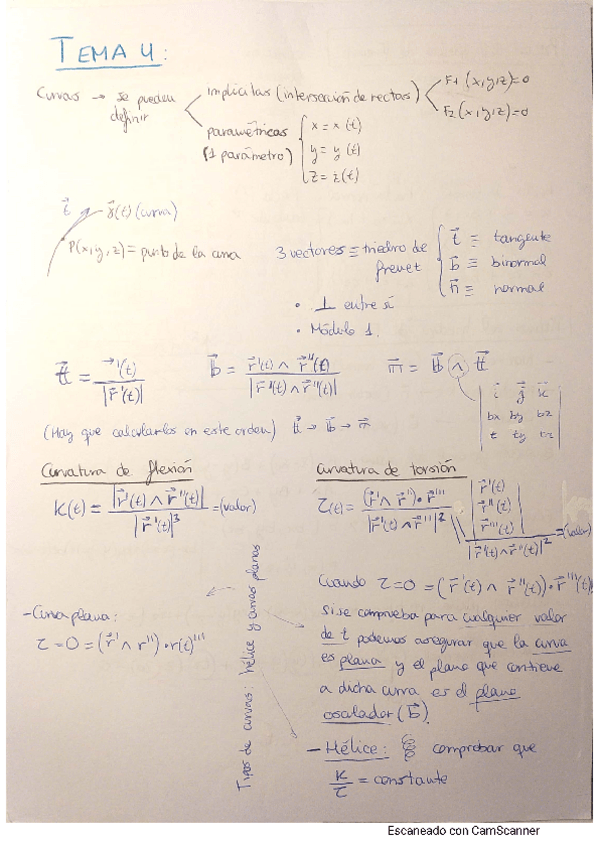 TEMA 4:
Curvas → se pueden definir
implícitas (intersección de rectas)
F1 (x,y,z)=0
F2 (x,y,z)=0
paramétricas (1 parámetro)
x = x (t)
y = y (t)
z = z(t)
t⃗ γ⃗(t) (curva)
P(x,y,z) = punto de la curva
3 vectores ≡ triedro de frenet
t⃗ ≡ tangente
b⃗ ≡ binormal
n⃗ ≡ normal
• ⊥ entre sí
• Módulo 1.
t⃗ = r⃗'(t) / |r⃗'(t)|
b⃗ = r⃗'(t) ∧ r⃗''(t) / |r⃗'(t) ∧ r⃗''(t)|
n⃗ = b⃗ ∧ t⃗
i⃗ j⃗ k⃗
bx by bz
t ty tz
(Hay que calcularlos en este orden) t⃗ → b⃗ → n⃗
Curvatura de flexión
K(t) = |r⃗'(t) ∧ r⃗''(t)| / |r⃗'(t)|³ = (valor)
curvatura de torsión
τ(t) = (r⃗' ∧ r⃗'')· r⃗''' / |r⃗'(t) ∧ r''(t)|²
r⃗'(t)
r⃗''(t)
r⃗'''(t)
|r⃗'(t) ∧ r⃗''(t)|² = (valor)
Cuando τ = 0 = (r⃗'(t) ∧ r⃗''(t))· r⃗'''(t)
si se comprueba para cualquier valor
de t podemos asegurar que la curva
es plana y el plano que contiene
a dicha curva es el plano
osculador (b⃗).
- Curva plana:
τ = 0 = (r⃗' ∧ r'')· r(t)'''
Tipos de curvas: hélice y curvas planas
- Hélice: comprobar que
K/τ = constante
Escaneado con CamScanner